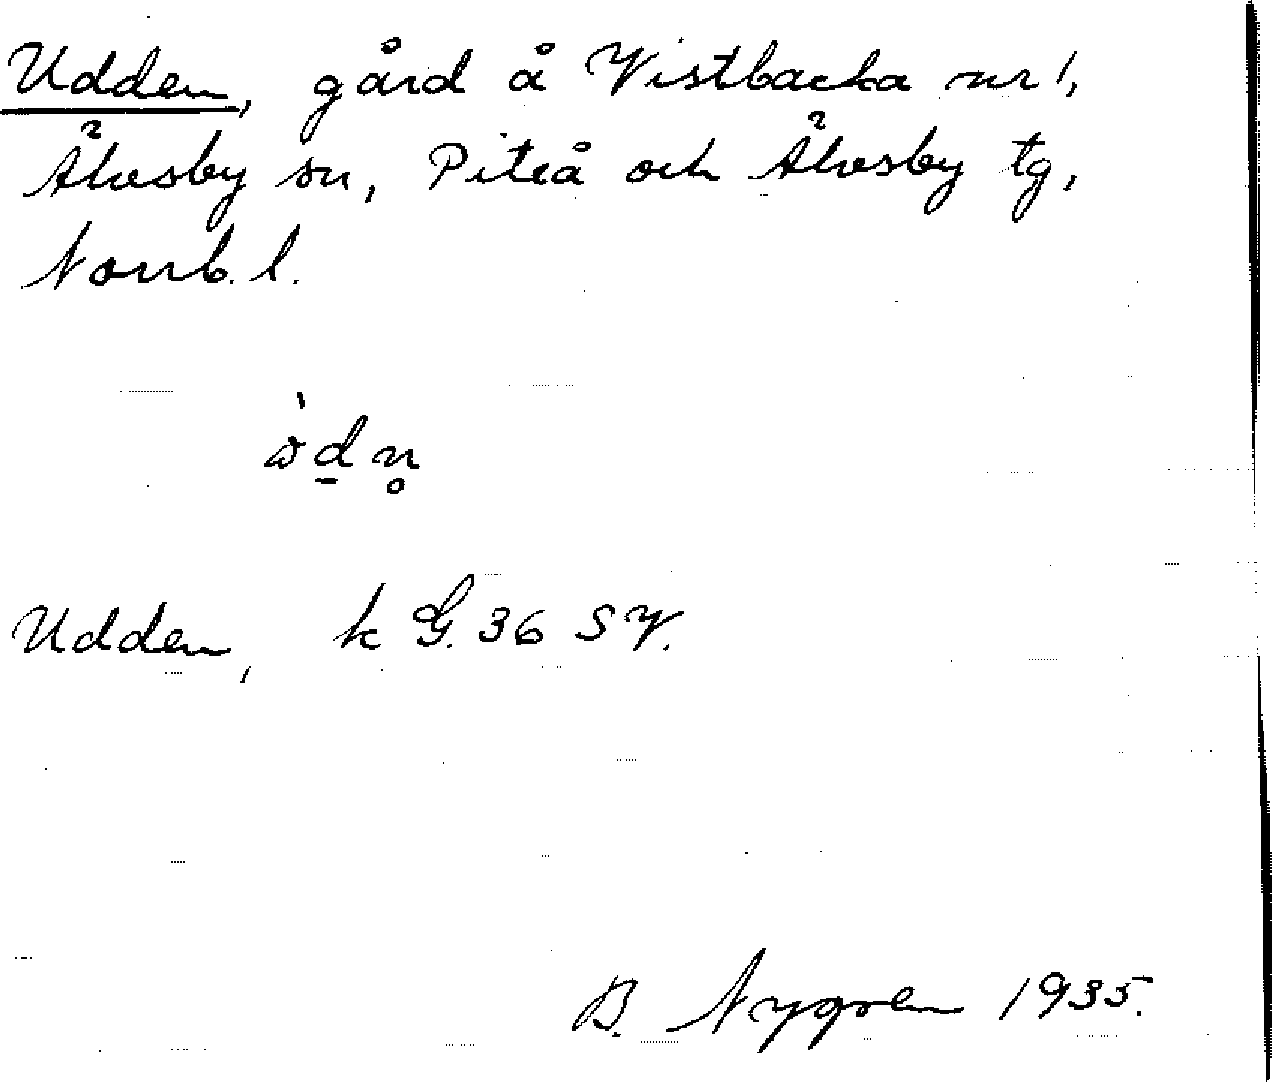 Udden, gård å Vistbacka nr 1,
Älvsby sn, Piteå och Älvsby tg,
Norrb. l.
Udden, k G. 36 SV.
B. Nygren 1935.